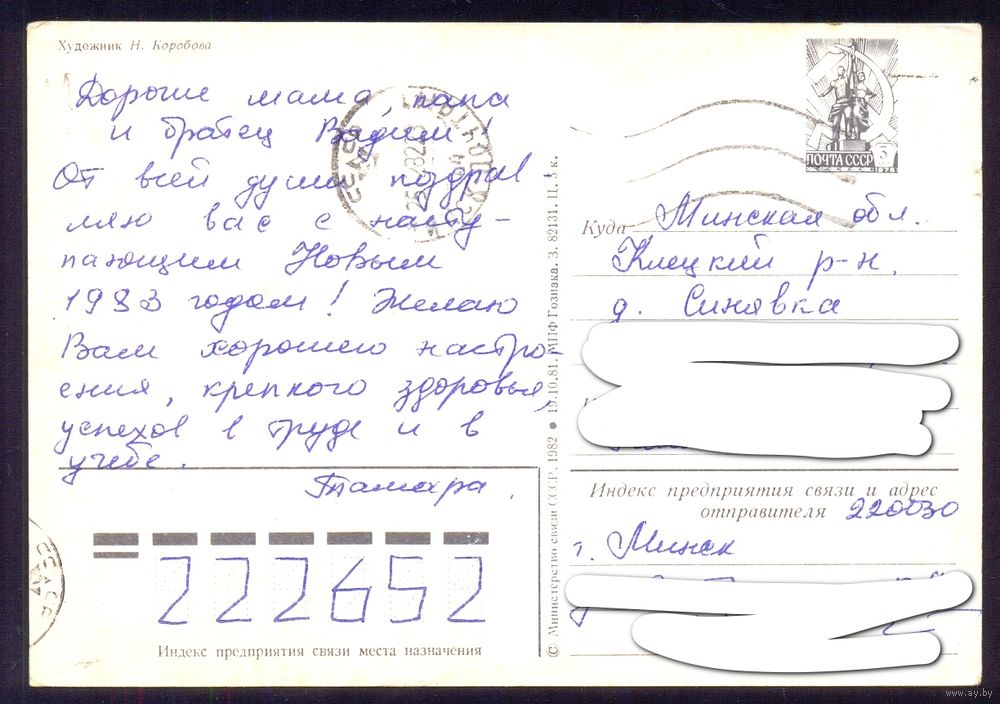 Художник Н. Коробова
Дорогие мама, папа
и братец Вадим!
От всей души поздрав
ляю вас с насту-
пающим Новым
1983 годом! Желаю
Вам хорошего настро-
ения, крепкого здоровья,
успехов в труде и в
учёбе.
Тамара.
222652
Индекс предприятия связи места назначения
© Министерство связи СССР. 1982 ● 19.10.81. МПФ Гознака. З. 82131. Ц. 3 к.
ПОЧТА СССР
1976
Куда Минская обл.
Клецкий р-н,
д. Синявка
Индекс предприятия связи и адрес
отправителя 220030
г. Минск
СССР
www.ay.by